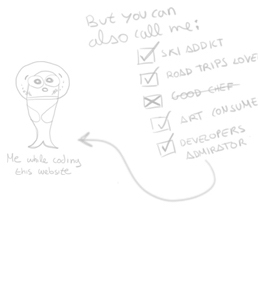 But you can
also call me:
SKI ADDICT
ROAD TRIPS LOVE
GOOD CHEF
ART CONSUME
DEVELOPERS
ADMIRATOR
Me while coding
this website